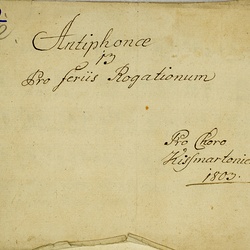 Antiphonæ
in
Pro feriis Rogationum
Pro Choro
Kißmartonie
1803.